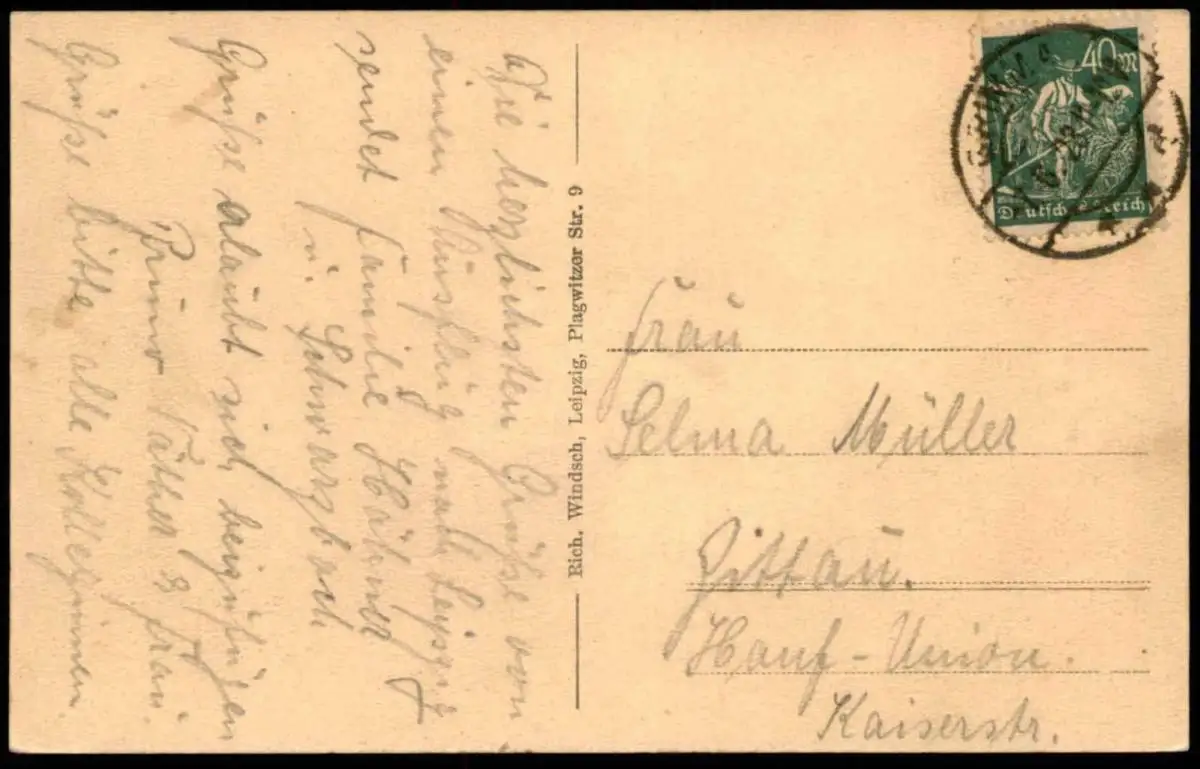 Die herzlichsten Grüße von
einem Ausflug nach Leipzig
sendet Familie
u. Schwarzbach
Grüße erlaubt sich beizufügen
Bruno & Frau.
Grüße bitte alle Kolleginnen.
Rich. Windsch, Leipzig, Plagwitzer Str. 9
40 M
Deutsches Reich
Frau
Selma Müller
Zittau.
Hanf-Union.
Kaiserstr.